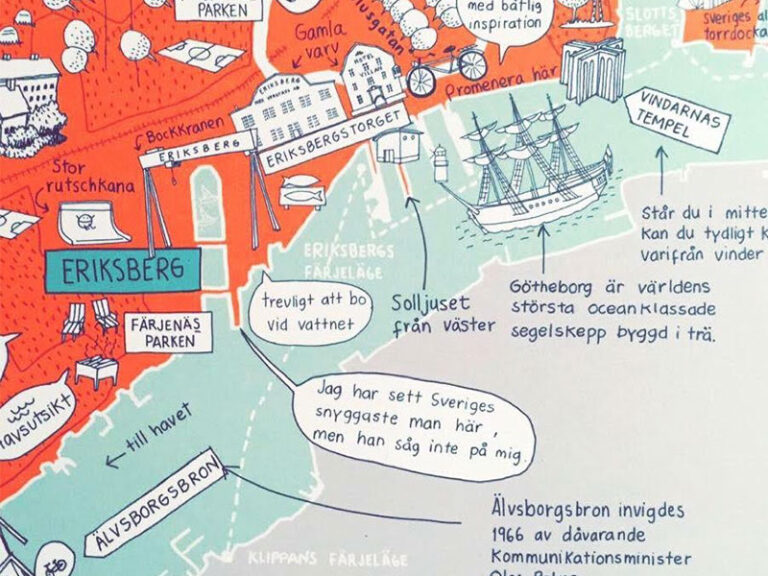 PARKEN
Gamla
varv
med båtlig
inspiration
SLOTTS
BERGET
Sveriges
torrdocka
Promenera här
HOTEL
VILLAN
ERIKSBERG
VINDARNAS
TEMPEL
Bockkranen
ERIKSBERG
ERIKSBERGSTORGET
Stor
rutschkana
Står du i
Kan du tydligt
varifrån vinder
ERIKSBERGS
FÄRJELÄGE
ERIKSBERG
Götheborg är världens
största oceanklassade
segelskepp byggd i trä.
trevligt att bo
vid vattnet
Solljuset
från väster
FÄRJENÄS
PARKEN
Jag har sett Sveriges
snyggaste man här,
men han såg inte på mig.
avsutsikt
till havet
ÄLVSBORGSBRON
Älvsborgsbron invigdes
1966 av dåvarande
Kommunikationsminister
KLIPPANS FÄRJELÄGE